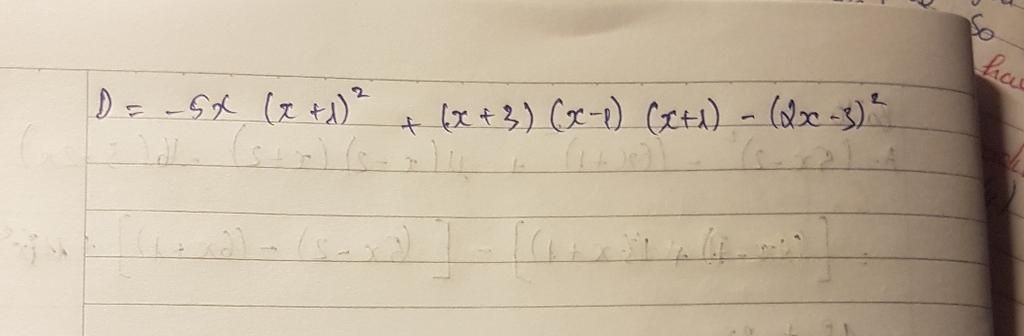 D = -5x (x+1)² + (x+3) (x-1) (x+1) - (2x-3)²
So